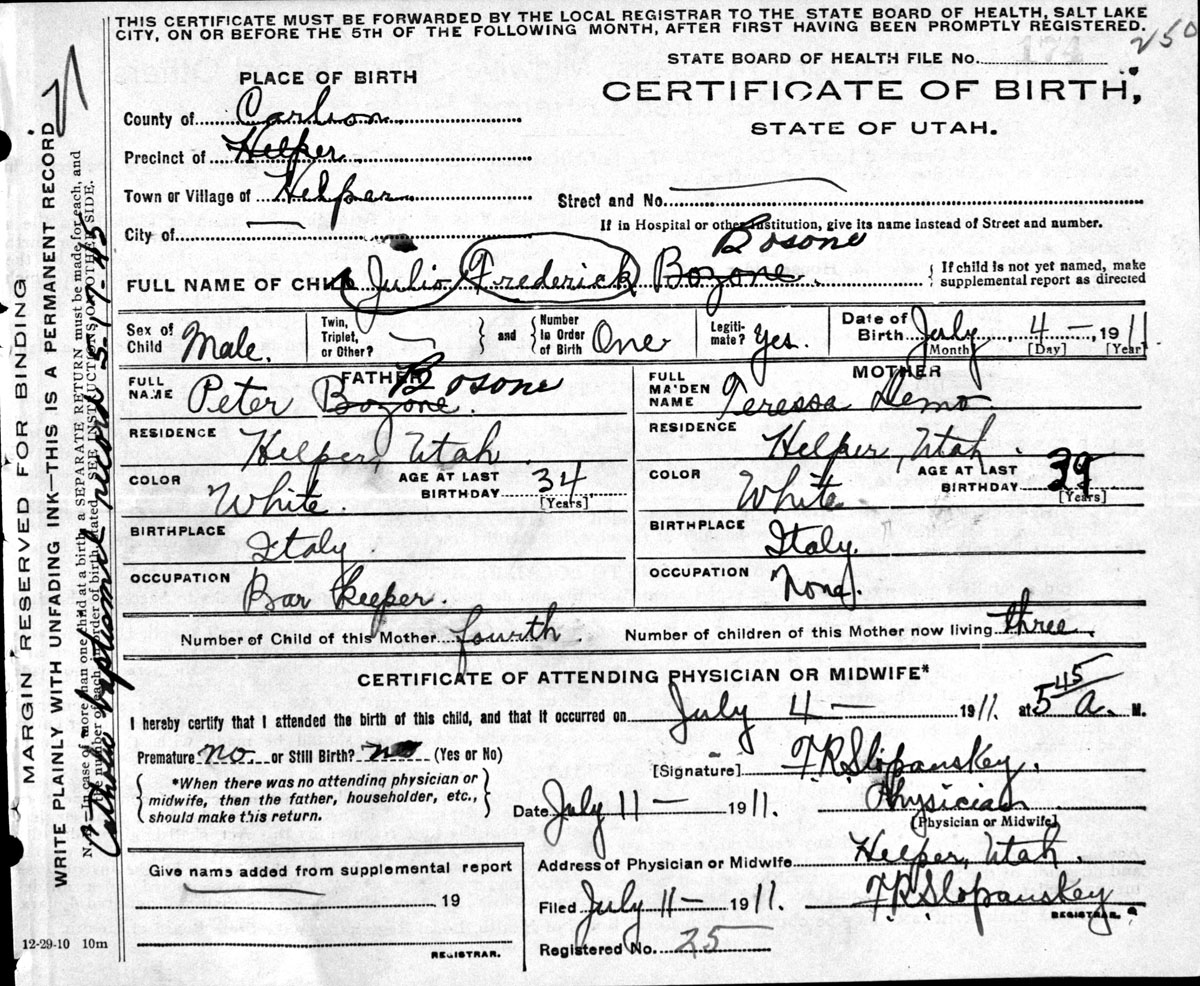 THIS CERTIFICATE MUST BE FORWARDED BY THE LOCAL REGISTRAR TO THE STATE BOARD OF HEALTH, SALT LAKE
CITY, ON OR BEFORE THE 5TH OF THE FOLLOWING MONTH, AFTER FIRST HAVING BEEN PROMPTLY REGISTERED.
250
174
STATE BOARD OF HEALTH FILE No.
PLACE OF BIRTH
CERTIFICATE OF BIRTH,
STATE OF UTAH.
County of Carbon
Precinct of Helper
Town or Village of Helper
Street and No.
City of
If in Hospital or other Institution, give its name instead of Street and number.
Bosone
FULL NAME OF CHILD Julio Frederick Bozone.
If child is not yet named, make
supplemental report as directed
Sex of Child Male.
Twin, Triplet, or Other?
and
Number in Order of Birth One
Legitimate? Yes.
Date of Birth July 4 — 1911
[Month] [Day] [Year]
FATHER
FULL NAME Peter Bozone. Bosone
RESIDENCE Helper, Utah
COLOR White.
AGE AT LAST BIRTHDAY 34
[Years]
BIRTHPLACE Italy.
OCCUPATION Bar Keeper.
MOTHER
FULL MAIDEN NAME Teressa Demo
RESIDENCE Helper, Utah.
COLOR White
AGE AT LAST BIRTHDAY
[Years]
BIRTHPLACE Italy.
OCCUPATION None.
Number of Child of this Mother fourth. Number of children of this Mother now living three.
CERTIFICATE OF ATTENDING PHYSICIAN OR MIDWIFE*
I hereby certify that I attended the birth of this child, and that it occurred on July 4 — 1911. at 5 45 A. M.
Premature no or Still Birth? no (Yes or No)
*When there was no attending physician or
midwife, then the father, householder, etc.,
should make this return.
[Signature] F.R. Slopanskey.
Date July 11 — 1911. Physician
[Physician or Midwife]
Address of Physician or Midwife Helper, Utah.
Filed July 11 — 1911. F.R. Slopanskey
REGISTRAR.
Registered No. 25
Give name added from supplemental report
19
REGISTRAR.
12-29-10 10m
MARGIN RESERVED FOR BINDING
WRITE PLAINLY WITH UNFADING INK—THIS IS A PERMANENT RECORD
N. B.—In case of more than one child at a birth, a SEPARATE RETURN must be made for each, and
the number of each, in order of birth, stated. SEE INSTRUCTIONS ON OTHER SIDE.
Baptismal record 5-17-43